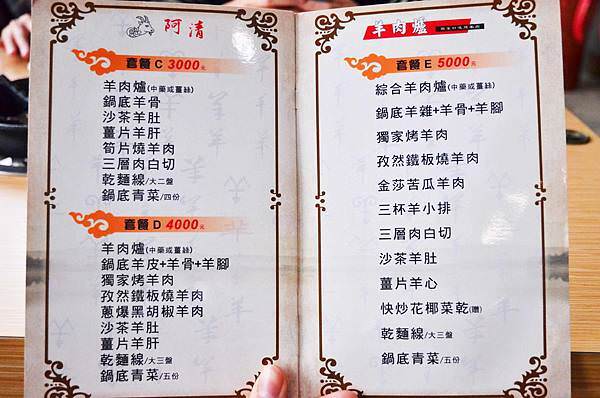 阿清
套餐 C 3000元
羊肉爐(中藥或薑絲)
鍋底羊骨
沙茶羊肚
薑片羊肝
筍片燒羊肉
三層肉白切
乾麵線/大二盤
鍋底青菜/四份
套餐 D 4000元
羊肉爐(中藥或薑絲)
鍋底羊皮+羊骨+羊腳
獨家烤羊肉
孜然鐵板燒羊肉
蔥爆黑胡椒羊肉
沙茶羊肚
薑片羊肝
乾麵線/大三盤
鍋底青菜/五份
羊肉爐
套餐 E 5000元
綜合羊肉爐(中藥或薑絲)
鍋底羊雜+羊骨+羊腳
獨家烤羊肉
孜然鐵板燒羊肉
金莎苦瓜羊肉
三杯羊小排
三層肉白切
沙茶羊肚
薑片羊心
快炒花椰菜乾(贈)
乾麵線/大三盤
鍋底青菜/五份